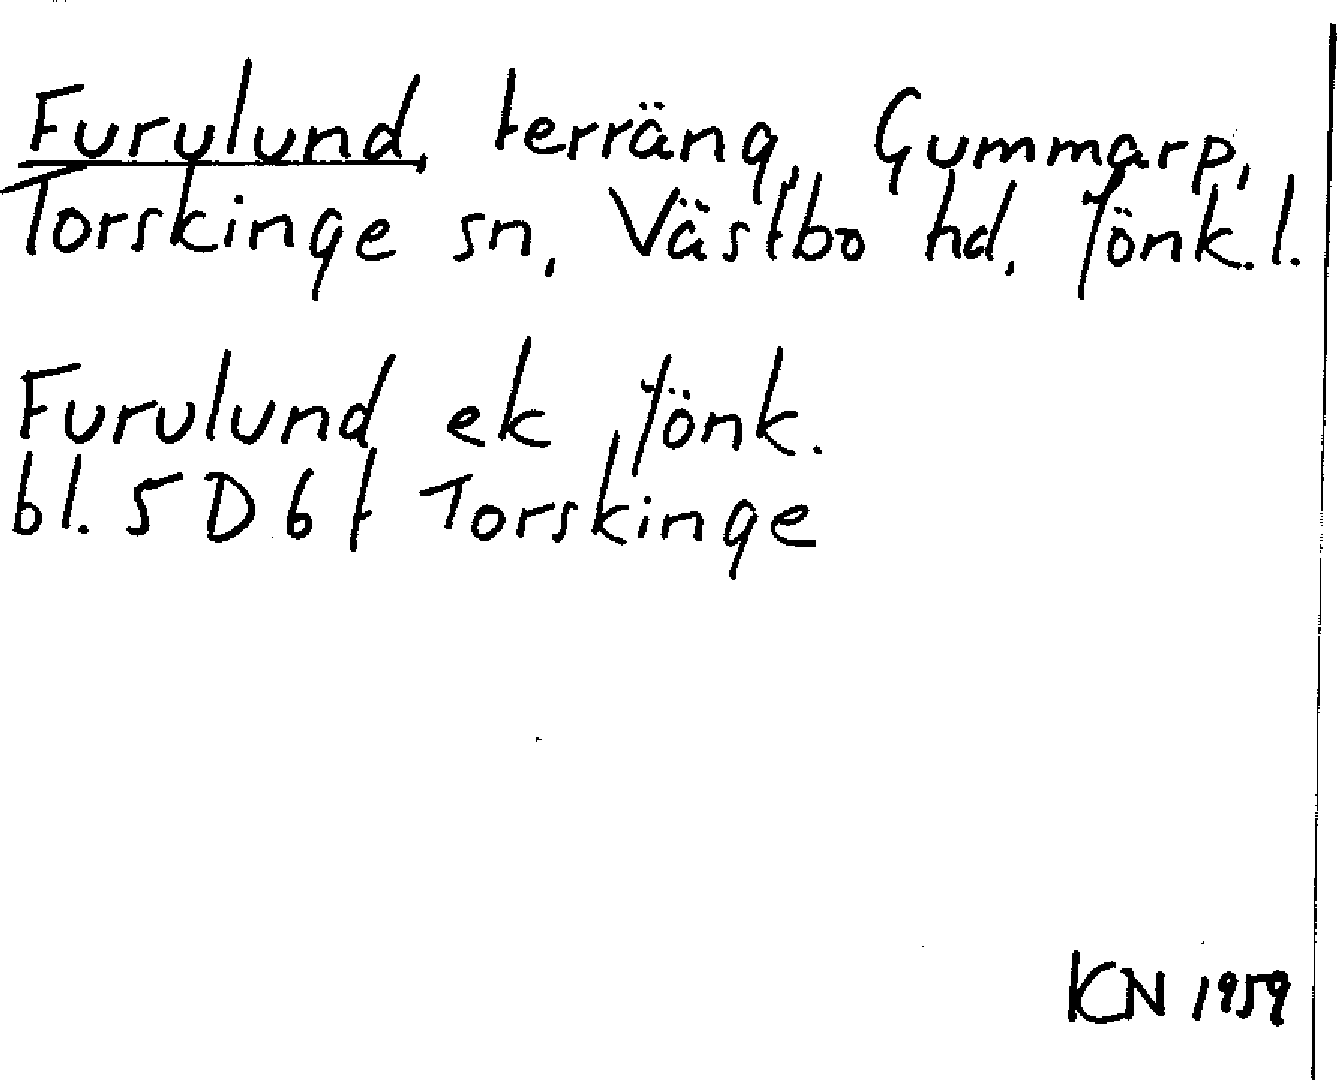 Furulund, terräng, Gummarp,
Torskinge sn, Västbo hd, Jönk.l.
Furulund ek Jönk.
bl. 5D6f Torskinge
KN 1959